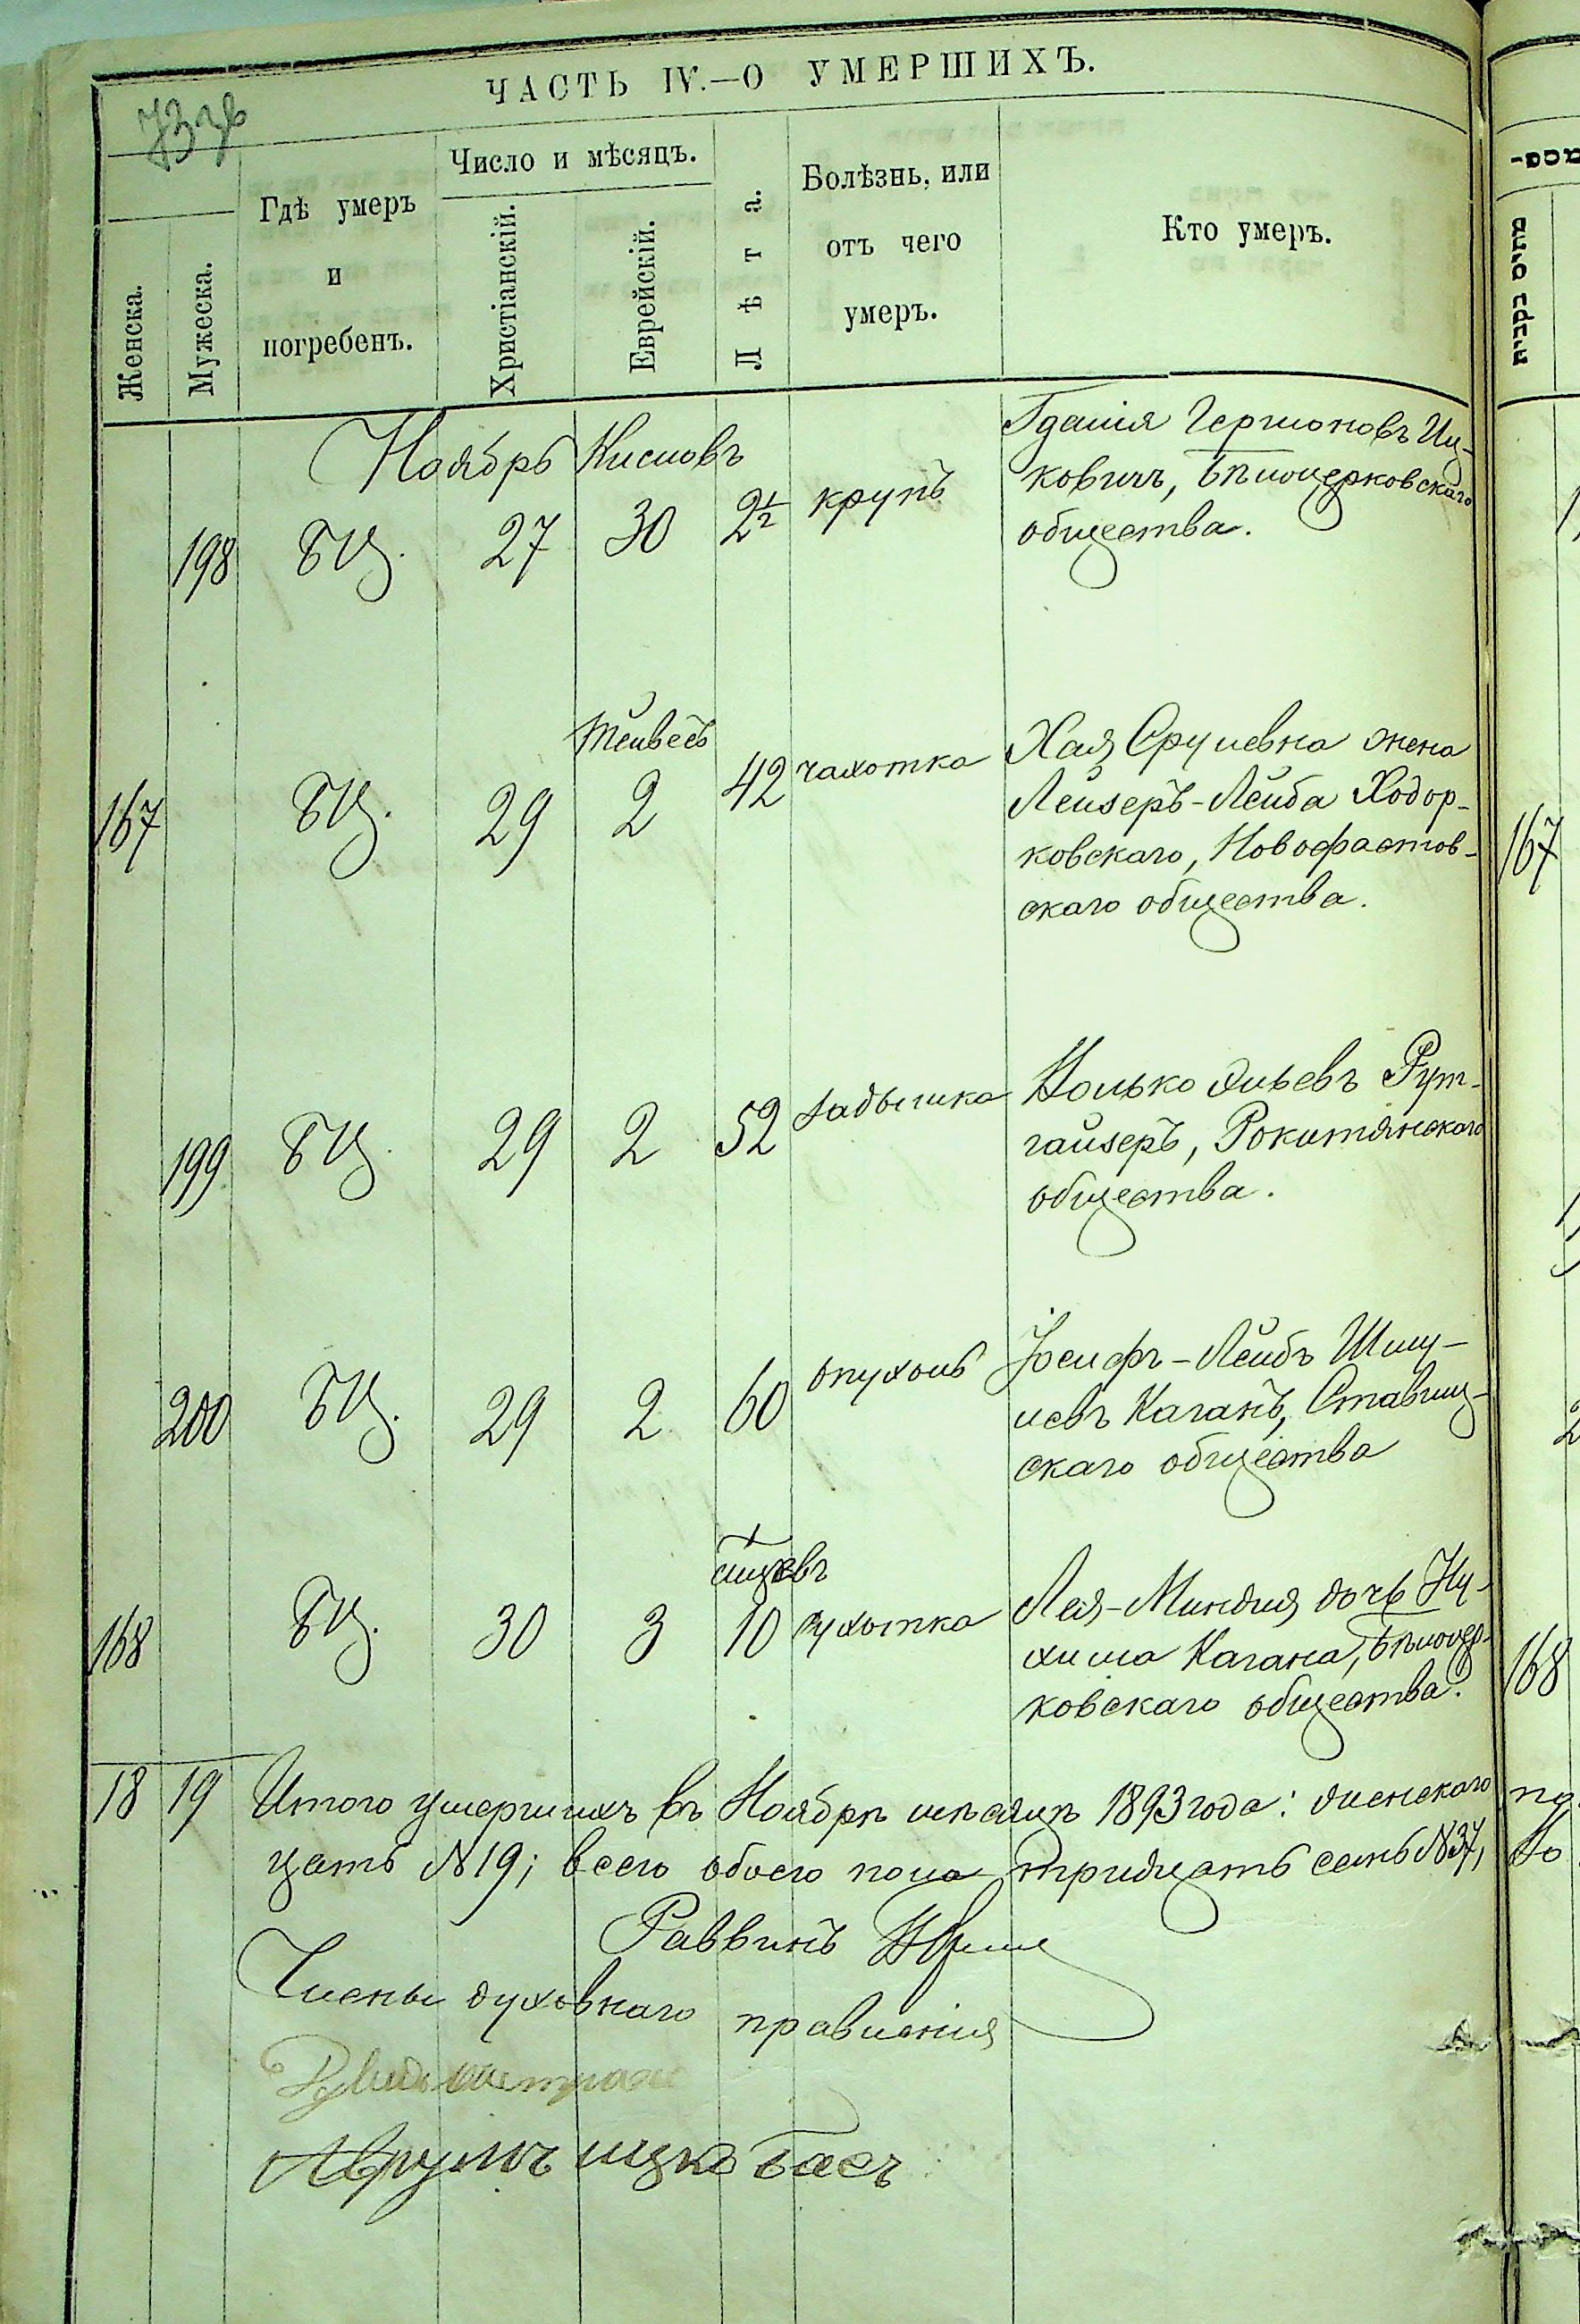 ЧАСТЬ IV.—О УМЕРШИХЪ.
Женска.
Мужеска.
Гдѣ умеръ
и
погребенъ.
Число и мѣсяцъ.
Христіанскій.
Еврейскій.
Лѣта.
Болѣзнь, или
отъ чего
умеръ.
Кто умеръ.
Ноябрь Кислевъ
198 БЦ. 27 30 2½ крупъ
Гдалія Гершоновъ Иц-
ковичъ, Бѣлоцерковскаго
общества.
Тейвесъ
167 БЦ. 29 2 42 чахотка
Хая Срулевна жена
Лейзеръ-Лейба Ходор-
ковскаго, Новофастов-
скаго общества.
199 БЦ. 29 2 52 задышка
Нолько Эльевъ Рут-
гайзеръ, Рокитянскаго
общества.
200 БЦ. 29 2 60 опухоль
Іосифъ-Лейбъ Шму-
левъ Каганъ, Ставищ-
скаго общества
168 БЦ. 30 3 10 сухотка
Лея-Миндля дочь Ну-
хима Кагана, Бѣлоцер-
ковскаго общества.
18 19 Итого умершихъ въ Ноябрѣ мѣсяцѣ 1893 года: женскаго
цать №19; всего обоего пола тридцать семь №37,
Раввинъ
Члены духовнаго правленія
Аврумъ ицко Басъ
מתים נקבות
167
168